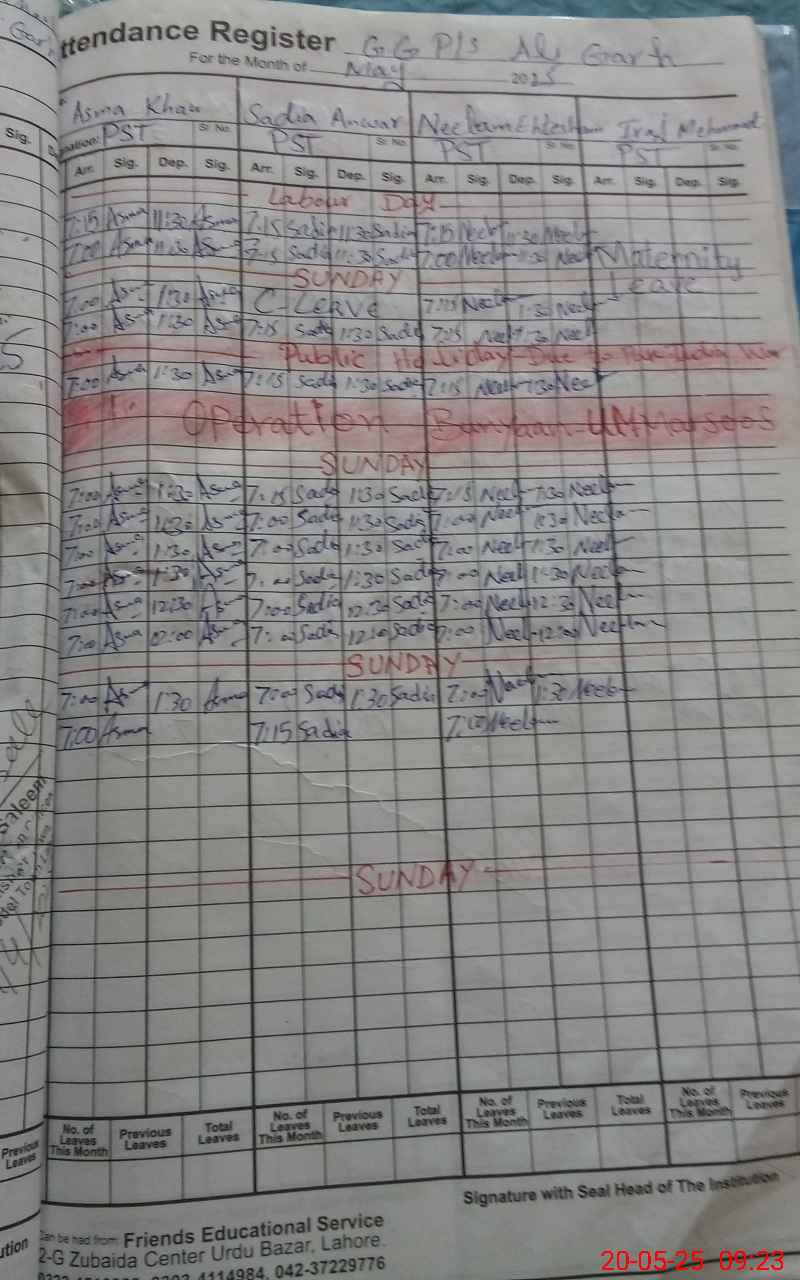 Attendance Register G.G P/S Ali Garh
For the Month of May 2025
Asma Khan Sadia Anwar Neelam Ehtesham Iraj Mehmood
PST Sr. No. PST Sr. No. PST Sr. No. PST Sr. No.
Arr. Sig. Dep. Sig. Arr. Sig. Dep. Sig. Arr. Sig. Dep. Sig. Arr. Sig. Dep. Sig.
Labour Day
7:15 Asma 11:30 Asma 7:15 Sadia 11:30 Sadia 7:15 Neel 11:30 Neel
7:00 Asma 11:30 Asma 7:15 Sadia 11:30 Sadia 7:00 Neel 11:30 Neel Maternity
SUNDAY Leave
7:00 Asma 1:30 Asma C-LEAVE 7:15 Neel 1:30 Neel
7:00 Asma 1:30 Asma 7:15 Sadia 1:30 Sadia 7:15 Neel 1:30 Neel
Public Holiday Due to Pak India War
7:00 Asma 1:30 Asma 7:15 Sadia 1:30 Sadia 7:15 Neel 1:30 Neel
Operation Banyaan UM Marsoos
SUNDAY
7:00 Asma 1:30 Asma 7:15 Sadia 1:30 Sadia 7:15 Neel 1:30 Neel
7:00 Asma 1:30 Asma 7:00 Sadia 1:30 Sadia 7:00 Neel 1:30 Neel
7:00 Asma 1:30 Asma 7:00 Sadia 1:30 Sadia 7:00 Neel 1:30 Neel
7:00 Asma 1:30 Asma 7:00 Sadia 1:30 Sadia 7:00 Neel 1:30 Neel
7:00 Asma 12:30 Asma 7:00 Sadia 12:30 Sadia 7:00 Neel 12:30 Neel
7:00 Asma 12:00 Asma 7:00 Sadia 12:00 Sadia 7:00 Neel 12:00 Neelam
SUNDAY
7:00 Asma 1:30 Asma 7:00 Sadia 1:30 Sadia 7:00 Neel 1:30 Neel
7:00 Asma 7:15 Sadia 7:00 Neelam
SUNDAY
No. of Leaves This Month Previous Leaves Total Leaves No. of Leaves This Month Previous Leaves Total Leaves No. of Leaves This Month Previous Leaves Total Leaves No. of Leaves This Month Previous Leaves
Signature with Seal Head of The Institution
Can be had from: Friends Educational Service
2-G Zubaida Center Urdu Bazar, Lahore.
4114984, 042-37229776
20-05-25 09:23